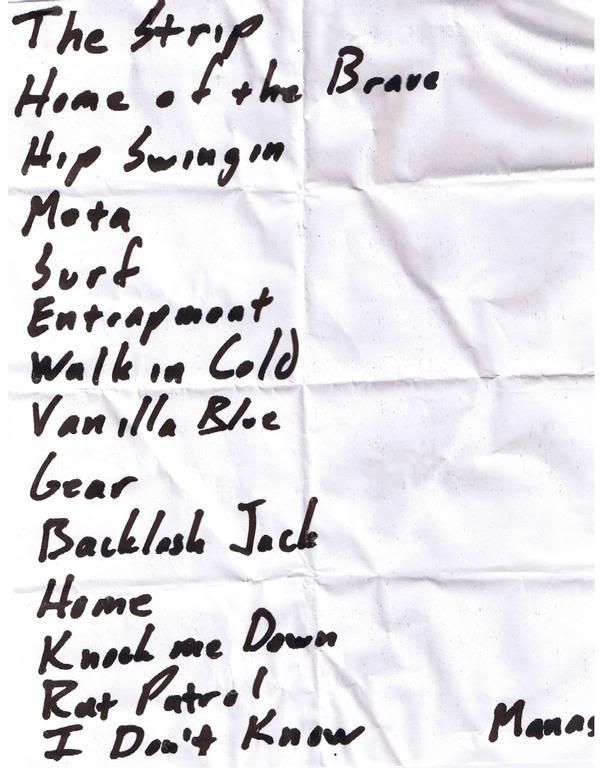 The Strip
Home of the Brave
Hip Swingin
Mota
Surf
Entrapment
Walk in Cold
Vanilla Blue
Gear
Backlash Jack
Home
Knock me Down
Rat Patrol
I Don't Know
Manag